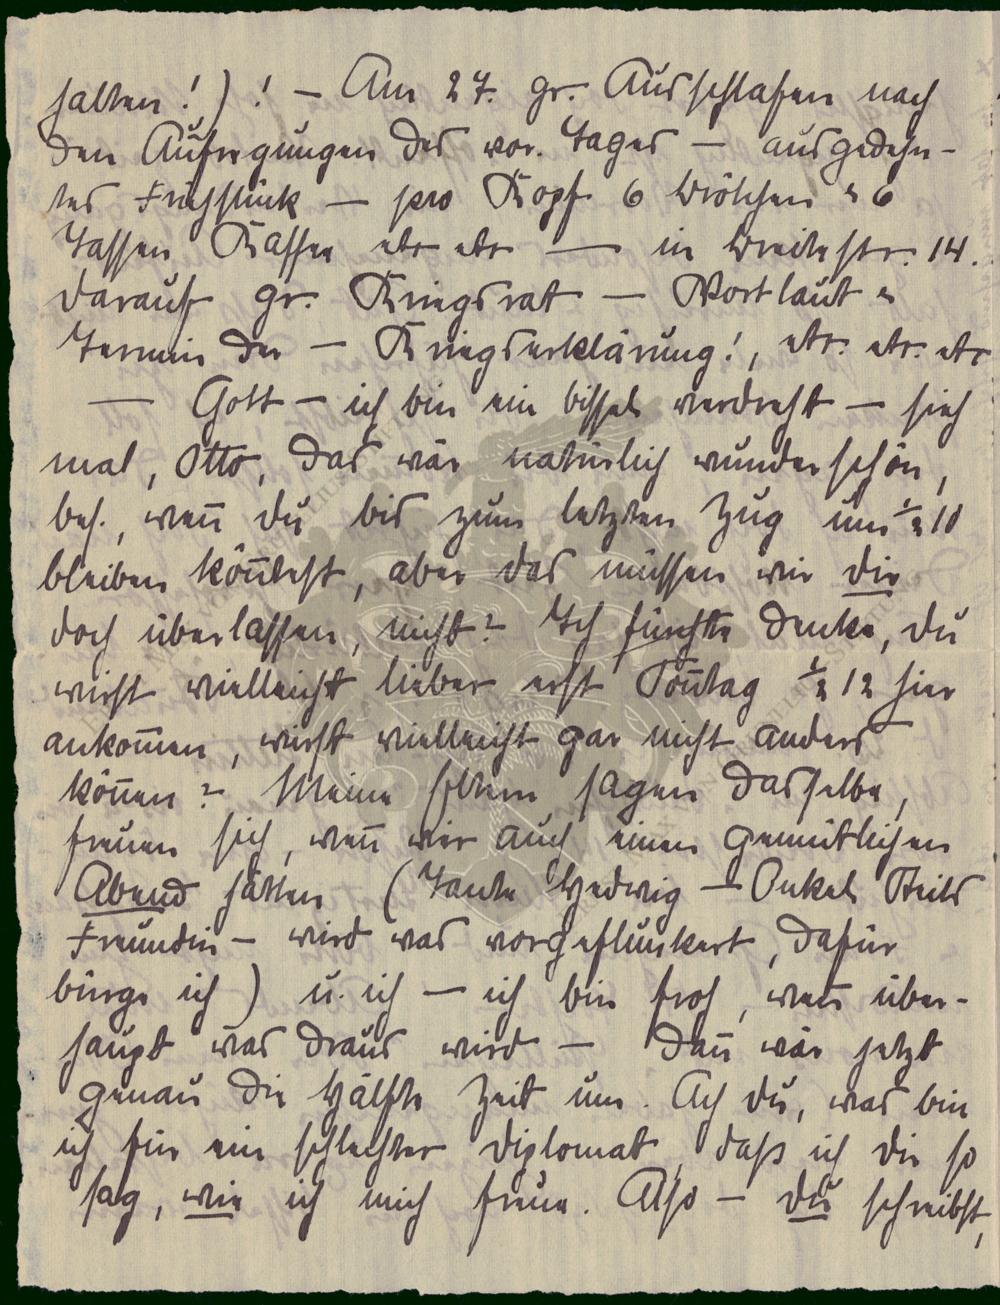 halten!)! – Am 27. gr. Ausschlafen nach
den Aufregungen des vor. Tages – ausgedehn-
tes Frühstück – pro Kopf 6 Brötchen u 6
Tassen Kaffee etc etc — in Breitestr. 14.
darauf gr. Kriegsrat – Wortlaut u
Termin der – Kriegserklärung!, etc. etc. etc
— Gott – ich bin ein bissel verdreht – sieh
mal, Otto, das wär natürlich wunderschön,
bes., wen̄ du bis zum letzten Zug um ½ 10
bleiben kön̄test, aber das müssen wir dir
doch überlassen, nicht? Ich fürchte denke, du
wirst vielleicht lieber erst Son̄tag ½ 12 hier
ankom̄en, wirst vielleicht gar nicht anders
kön̄en? Meine Eltern sagen dasselbe,
freuen sich, wen̄ wir auch einen gemütlichen
Abend hätten (Tante Hedwig – Onkel
Freundin – wird was vorgeflunkert, dafür
bürge ich) u. ich – ich bin froh, wen̄ über-
haupt was draus wird – dan̄ wär jetzt
genau die Hälfte Zeit um. Ach du, was bin
ich für ein schlechter Diplomat, daß ich dir so
sag, wie ich mich freue. Also – du schreibst,